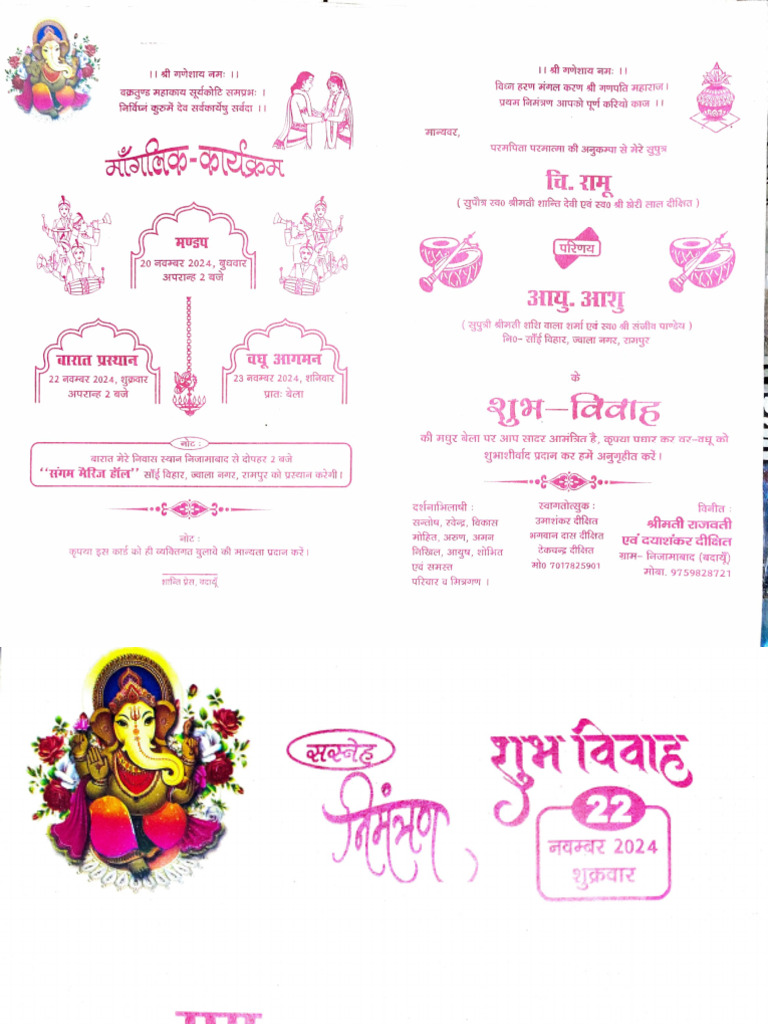 ।। श्री गणेशाय नमः ।।
वक्रतुण्ड महाकाय सूर्यकोटि समप्रभः ।
निर्विघ्नं कुरूमें देव सर्वकार्येषु सर्वदा ।।
माँगलिक-कार्यक्रम
मण्डप
20 नवम्बर 2024, बुधवार
अपरान्ह 2 बजे
बारात प्रस्थान
22 नवम्बर 2024, शुक्रवार
अपरान्ह 2 बजे
वधू आगमन
23 नवम्बर 2024, शनिवार
प्रातः बेला
नोट :
बारात मेरे निवास स्थान निजामाबाद से दोपहर 2 बजे
‘‘संगम मैरिज हॉल’’ साँई विहार, ज्वाला नगर, रामपुर को प्रस्थान करेगी।
नोट :
कृपया इस कार्ड को ही व्यक्तिगत बुलावे की मान्यता प्रदान करें।
शान्ति प्रेस, बदायूँ
।। श्री गणेशाय नमः ।।
विघ्न हरण मंगल करण श्री गणपति महाराज।
प्रथम निमंत्रण आपको पूर्ण करियो काज ।।
मान्यवर,
परमपिता परमात्मा की अनुकम्पा से मेरे सुपुत्र
चि. रामू
( सुपौत्र स्व० श्रीमती शान्ति देवी एवं स्व० श्री डोरी लाल दीक्षित )
परिणय
आयु. आशु
( सुपुत्री श्रीमती शशि वाला शर्मा एवं स्व० श्री संजीव पाण्डेय )
नि०- साँई विहार, ज्वाला नगर, रामपुर
के
शुभ-विवाह
की मधुर बेला पर आप सादर आमंत्रित है, कृपया पधार कर वर-वधू को
शुभाशीर्वाद प्रदान कर हमें अनुगृहीत करें।
दर्शनाभिलाषी :
सन्तोष, रवेन्द्र, विकास
मोहित, अरुण, अमन
निखिल, आयुष, शोभित
एवं समस्त
परिवार व मित्रगण ।
स्वागतोत्सुक :
उमाशंकर दीक्षित
भगवान दास दीक्षित
टेकचन्द्र दीक्षित
मो० 7017825901
विनीत :
श्रीमती राजवती
एवं दयाशंकर दीक्षित
ग्राम- निजामाबाद (बदायूँ)
मोबा. 9759828721
सस्नेह
निमंत्रण
शुभ विवाह
22
नवम्बर 2024
शुक्रवार